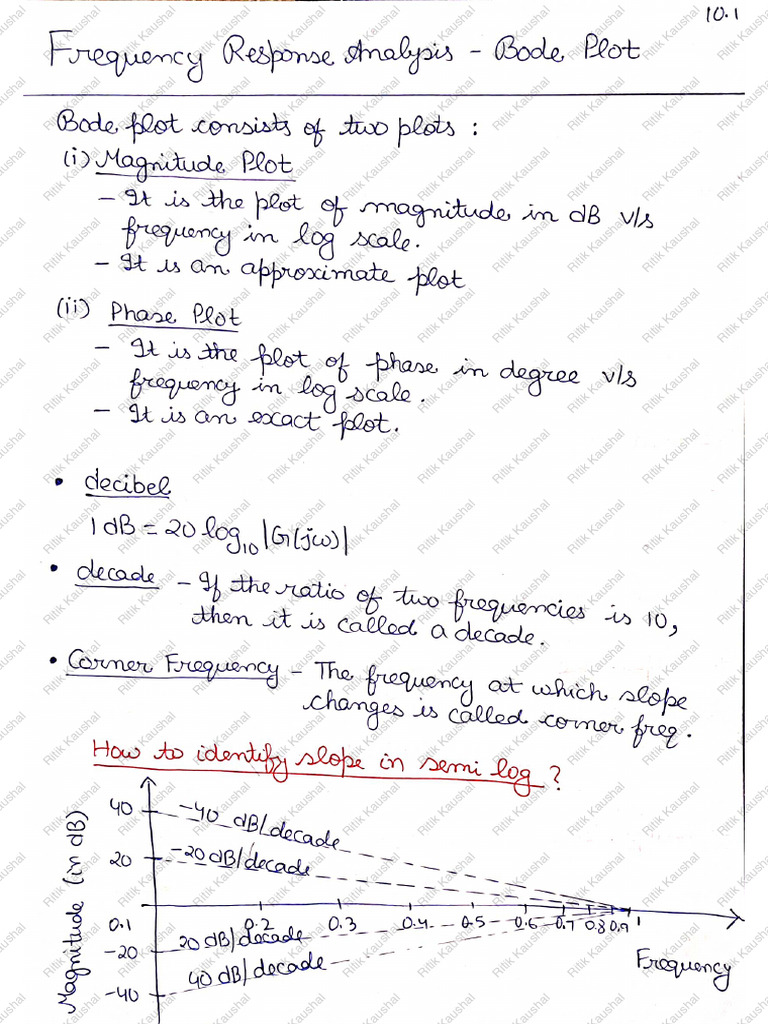 10.1
Frequency Response Analysis - Bode Plot
Bode plot consists of two plots :
(i) Magnitude Plot
- It is the plot of magnitude in dB v/s
frequency in log scale.
- It is an approximate plot
(ii) Phase Plot
- It is the plot of phase in degree v/s
frequency in log scale.
- It is an exact plot.
• decibel
1 dB = 20 log₁₀ |G(jω)|
• decade - If the ratio of two frequencies is 10,
then it is called a decade.
• Corner Frequency - The frequency at which slope
changes is called corner freq.
How to identify slope in semi log ?
Magnitude (in dB)
40
-40 dB/decade
20
-20 dB/decade
0.1 0.2 0.3 0.4 0.5 0.6 0.7 0.8 0.9 1
-20
20 dB/decade
-40
40 dB/decade
Frequency
Ritik Kaushal